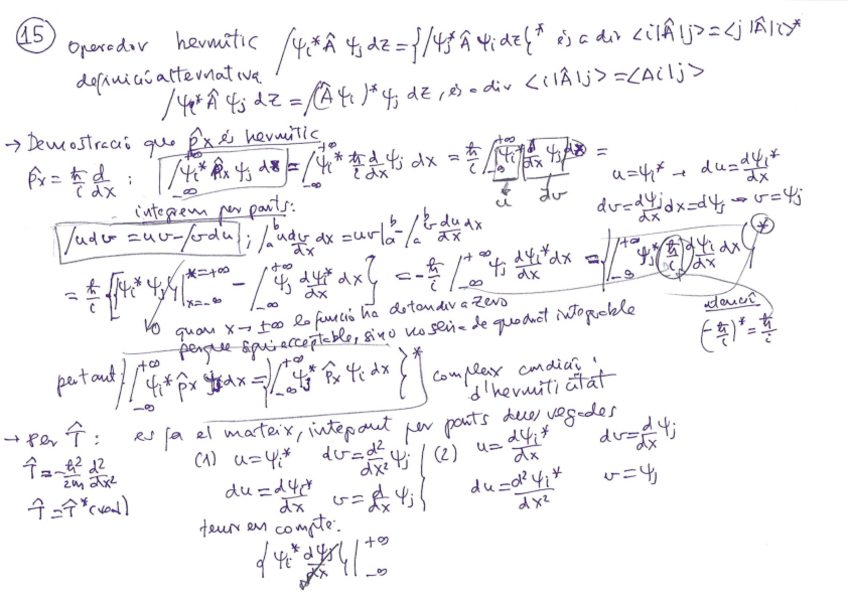 15 Operador hermític ∫ψi* Â ψj dz = {∫ψj* Â ψi dz}* és a dir <i|Â|j> = <j|Â|i>*
definició alternativa
∫ψi* Â ψj dz = ∫(Â ψi)* ψj dz, és a dir <i|Â|j> = <Ai|j>
→ Demostració que p̂x és hermític
p̂x = ħ/i d/dx ; ∫_{-∞}^{+∞} ψi* p̂x ψj dx = ∫_{-∞}^{+∞} ψi* ħ/i d/dx ψj dx = ħ/i ∫_{-∞}^{+∞} ψi* d/dx ψj dx =
u dv
u = ψi* → du = dψi*/dx
dv = dψj/dx dx = dψj → v = ψj
integrem per parts:
∫udv = uv - ∫vdu ; ∫_a^b u dv/dx dx = uv|_a^b - ∫_a^b v du/dx dx
= ħ/i {[ψi* ψj]|_{x=-∞}^{x=+∞} - ∫_{-∞}^{+∞} ψj dψi*/dx dx} = -ħ/i ∫_{-∞}^{+∞} ψj dψi*/dx dx = {∫_{-∞}^{+∞} ψj* ħ/i dψi/dx dx}*
0 quan x → ±∞ la funció ha de tendir a zero
perque sigui acceptable, sino no seria de quadrat integrable
(-ħ/i)* = ħ/i
per tant ∫_{-∞}^{+∞} ψi* p̂x ψj dx = {∫_{-∞}^{+∞} ψj* p̂x ψi dx}* compleix condició
d'hermiticitat
→ per T̂ : es fa el mateix, integrant per parts dues vegades
T̂ = -ħ²/2m d²/dx²
T̂ = T̂* (real)
(1) u = ψi* dv = d²/dx² ψj
du = dψi*/dx v = d/dx ψj
(2) u = dψi*/dx dv = d/dx ψj
du = d²ψi*/dx² v = ψj
tenir en compte:
{ψi* dψj/dx}|_{-∞}^{+∞}